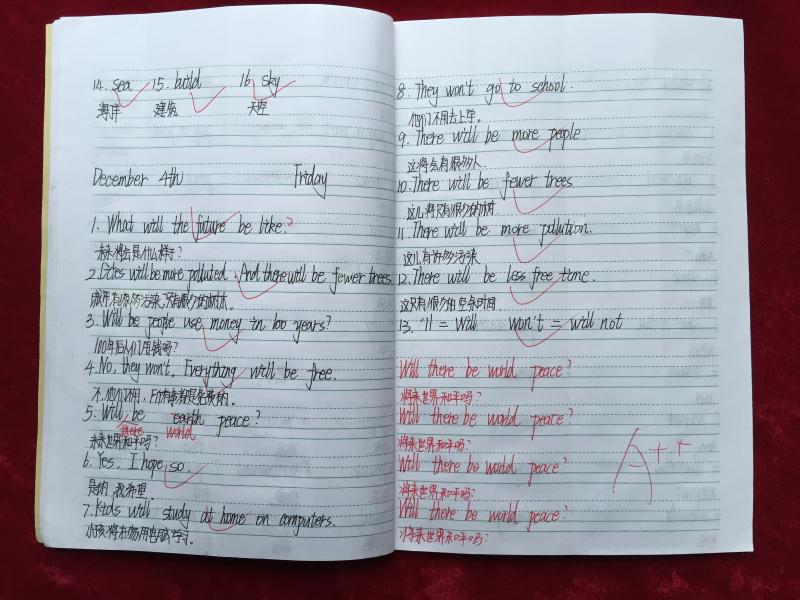 14. sea 15. build 16. sky
海洋 建筑 天空
December 4th Friday
1. What will the future be like?
未来将会是什么样子?
2. Cities will be more polluted. And there will be fewer trees.
3. Will be people use money in 100 years?
100年后人们用钱吗?
4. No, they won't. Everything will be free.
不,他们不用,所有事都是免费的。
5. Will be earth peace?
there world
未来世界和平吗?
6. Yes, I hope so.
是的,我希望。
7. Kids will study at home on computers.
小孩将在家用电脑学习。
8. They won't go to school.
他们不用去上学。
9. There will be more people.
这将会有很多人.
10. There will be fewer trees.
这儿将只有很少的树.
11. There will be more pollution.
这儿有许多污染
12. There will be less free time.
这只有很少的空余时间.
13. 'll = will won't = will not
Will there be world peace?
将来世界和平吗?
Will there be world peace?
将来世界和平吗?
Will there be world peace?
将来世界和平吗?
Will there be world peace?
将来世界和平吗?
A++